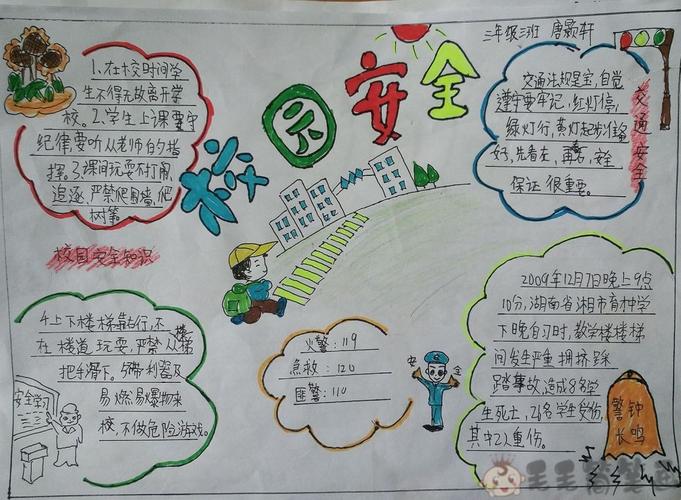 三年级三班 唐颢轩
校园安全
1.在校时间学
生不得无故离开学
校。2.学生上课要守
纪律要听从老师的指
挥。3.课间玩耍不打闹、
追逐,严禁爬围墙、爬
树等。
校园安全知识
交通法规是宝,自觉
遵守要牢记,红灯停,
绿灯行,黄灯起步准备
好,先看左,再看右,安全
保证很重要。
交通安全
4.上下楼梯靠右行,不
在楼道玩耍,严禁从楼梯
把手滑下。5.不带利器及
易燃易爆物来
校,不做危险游戏。
安全学习
火警:119
急救:120
匪警:110
安全
2009年12月7日晚上9点
10分,湖南省湘市育种学
下晚自习时,教学楼楼梯
间发生严重拥挤踩
踏事故,造成8名学
生死亡,26名学生受伤,
其中2人重伤。
警钟
长鸣